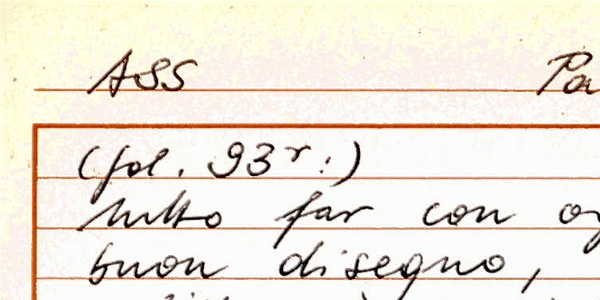 ASS Pa
(fol. 93r:)
tutto far con og
buon disegno,